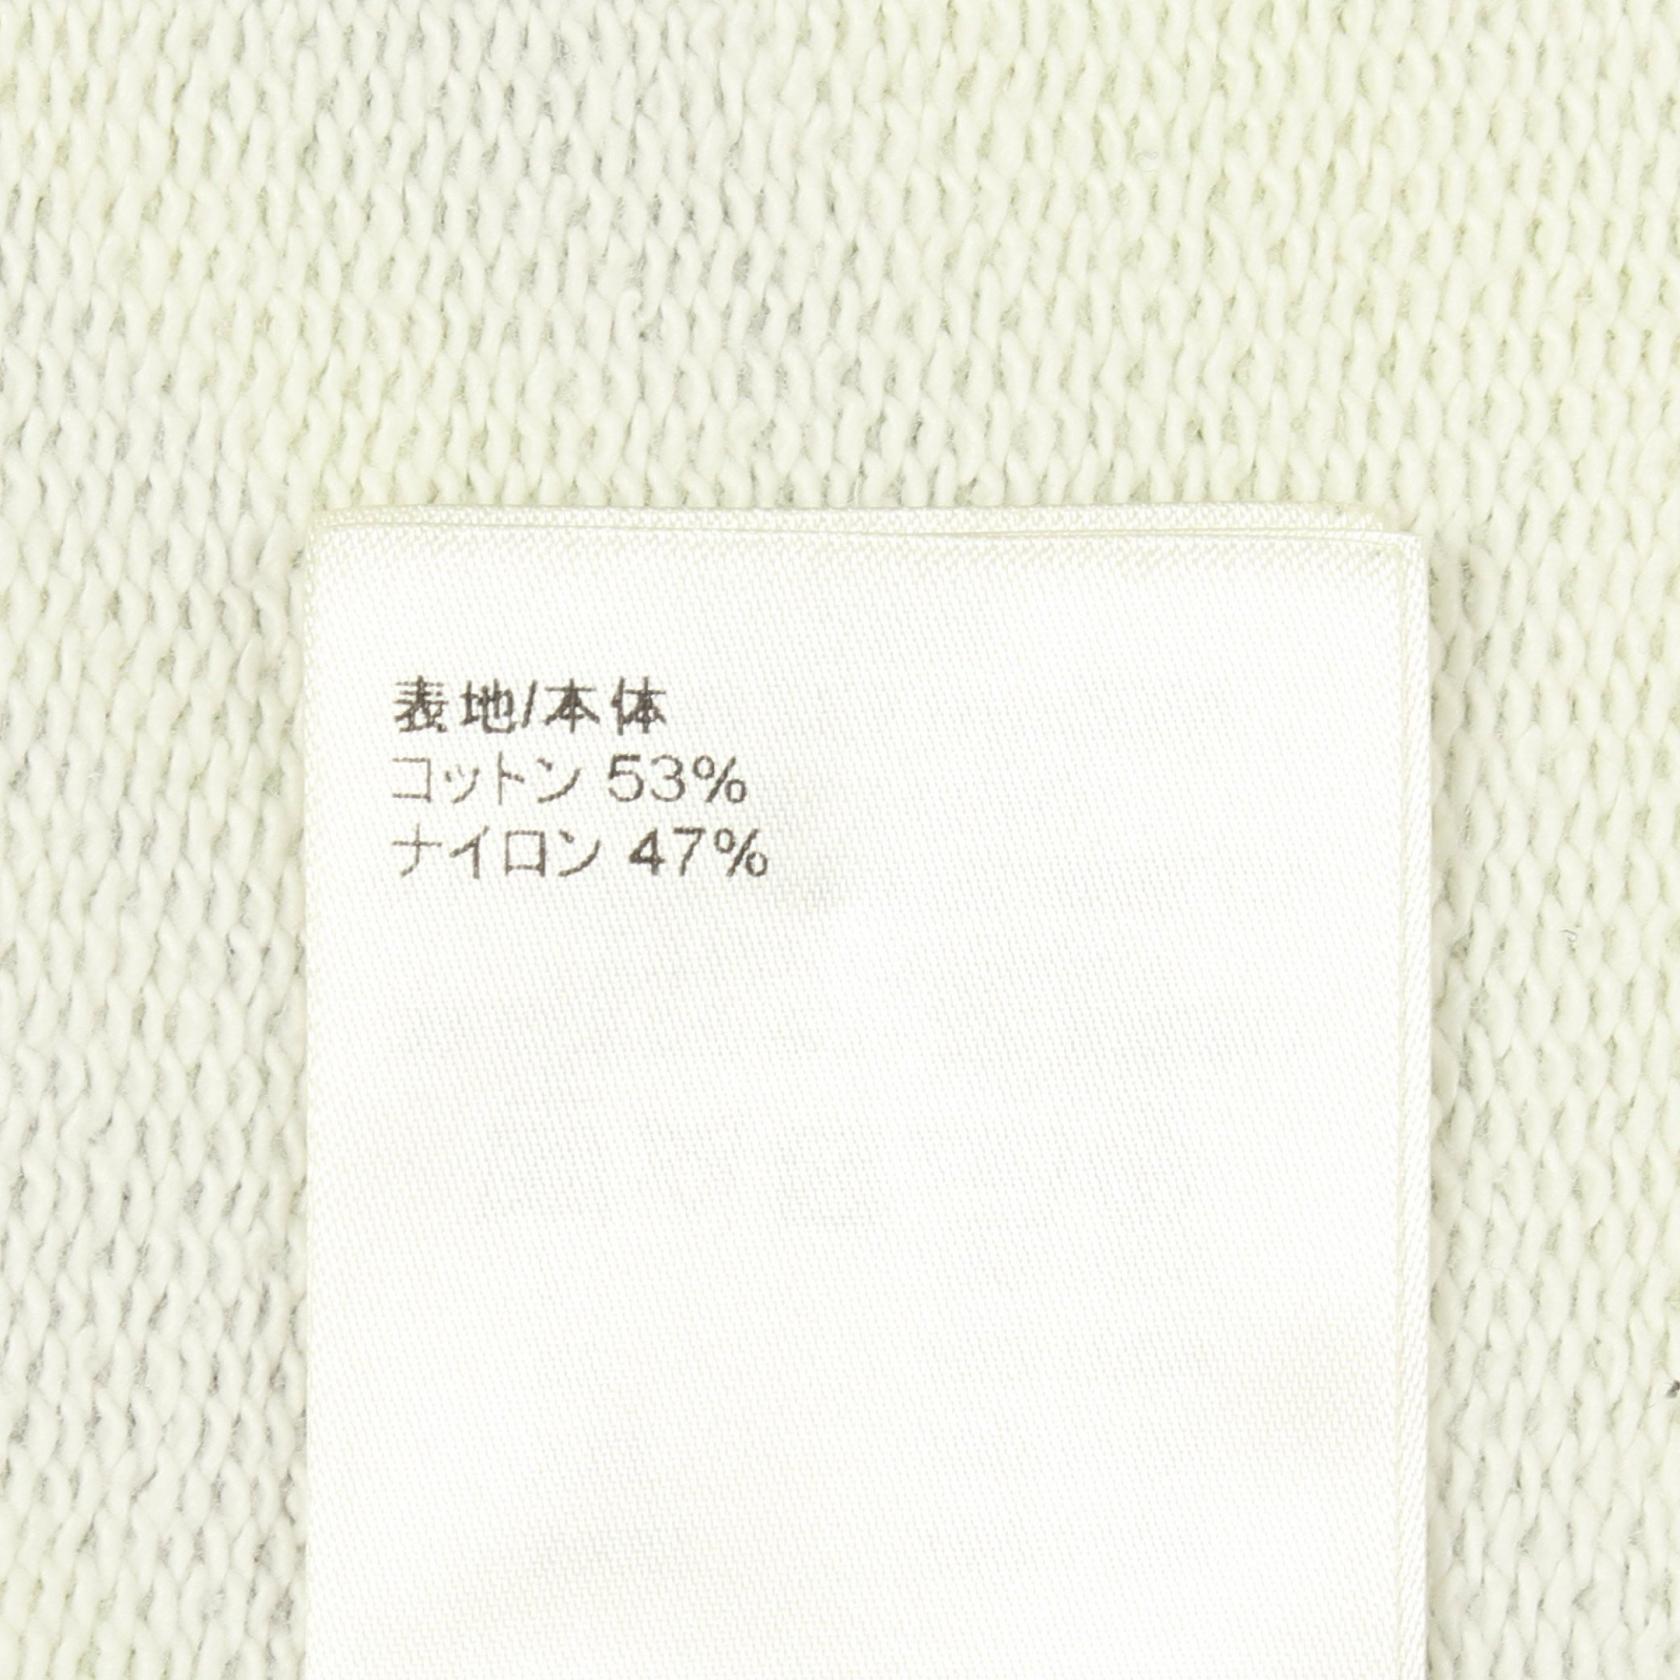 表地/本体
コットン 53%
ナイロン 47%